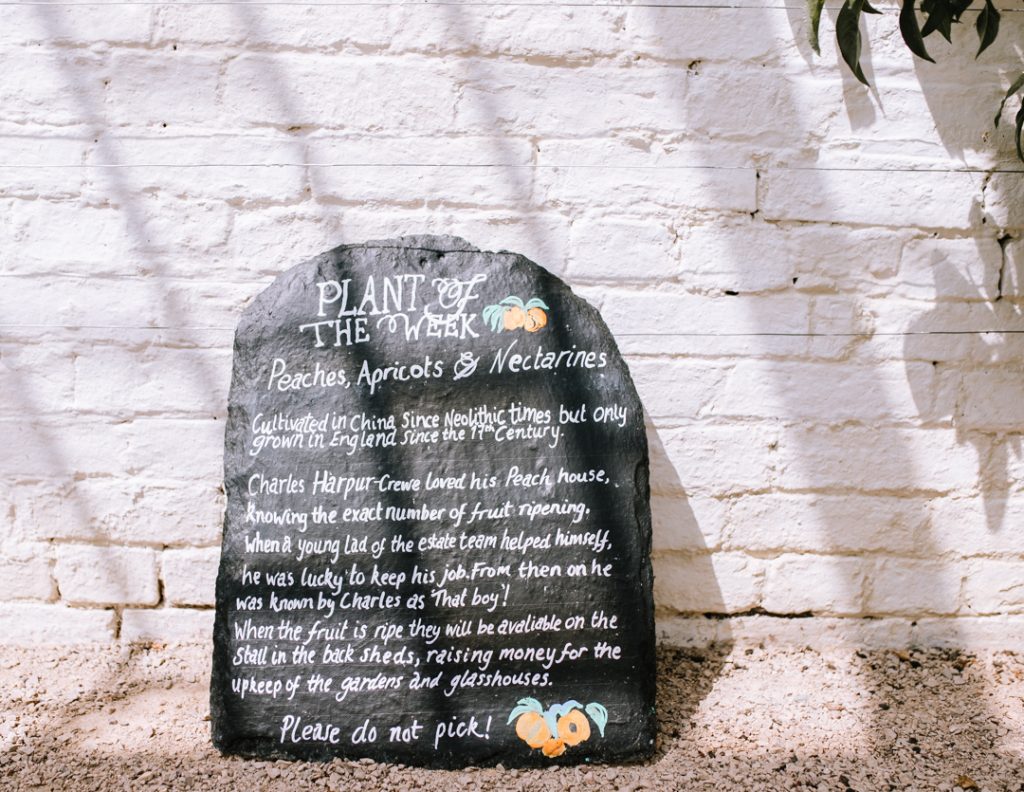 PLANT of
THE WEEK
Peaches, Apricots & Nectarines
Cultivated in China Since Neolithic times but only
grown in England since the 17th Century.
Charles Harpur-Crewe loved his Peach house,
knowing the exact number of fruit ripening.
When a young lad of the estate team helped himself,
he was lucky to keep his job. From then on he
was known by Charles as 'That boy'!
When the fruit is ripe they will be avaliable on the
Stall in the back sheds, raising money for the
upkeep of the gardens and glasshouses.
Please do not pick!